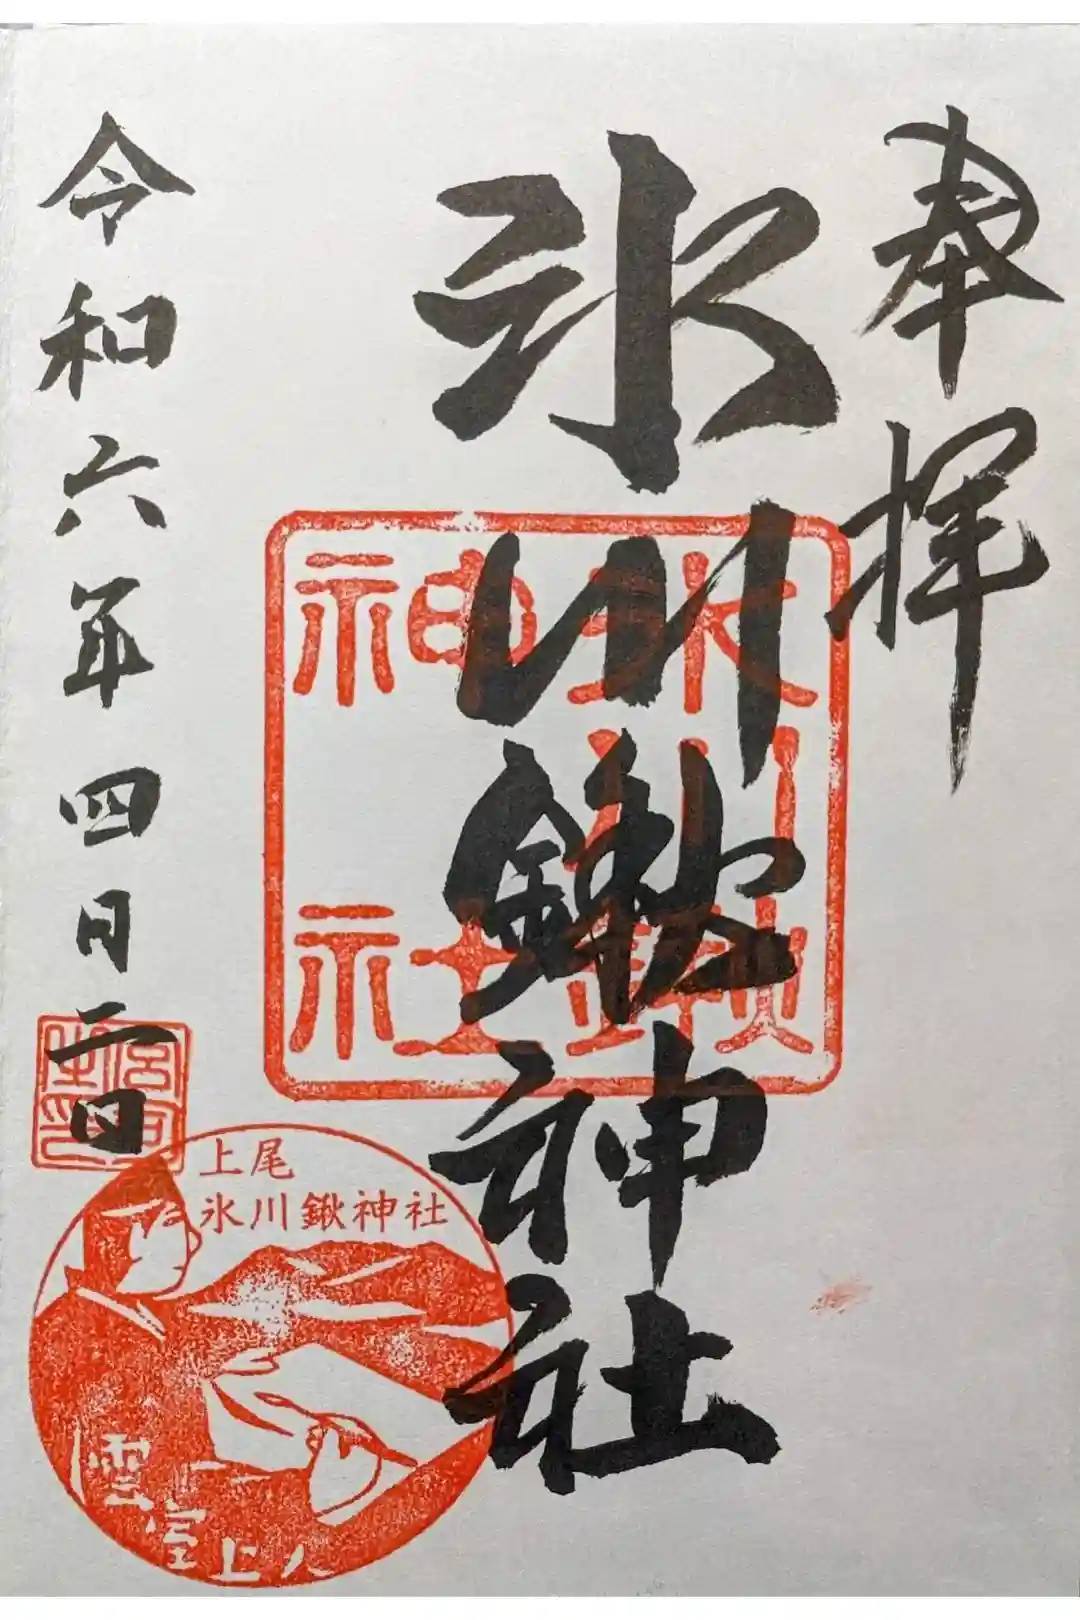 奉拝
氷川鍬神社
氷川鍬
神社
令和六年四月二日
上尾
氷川鍬神社
雲室上人